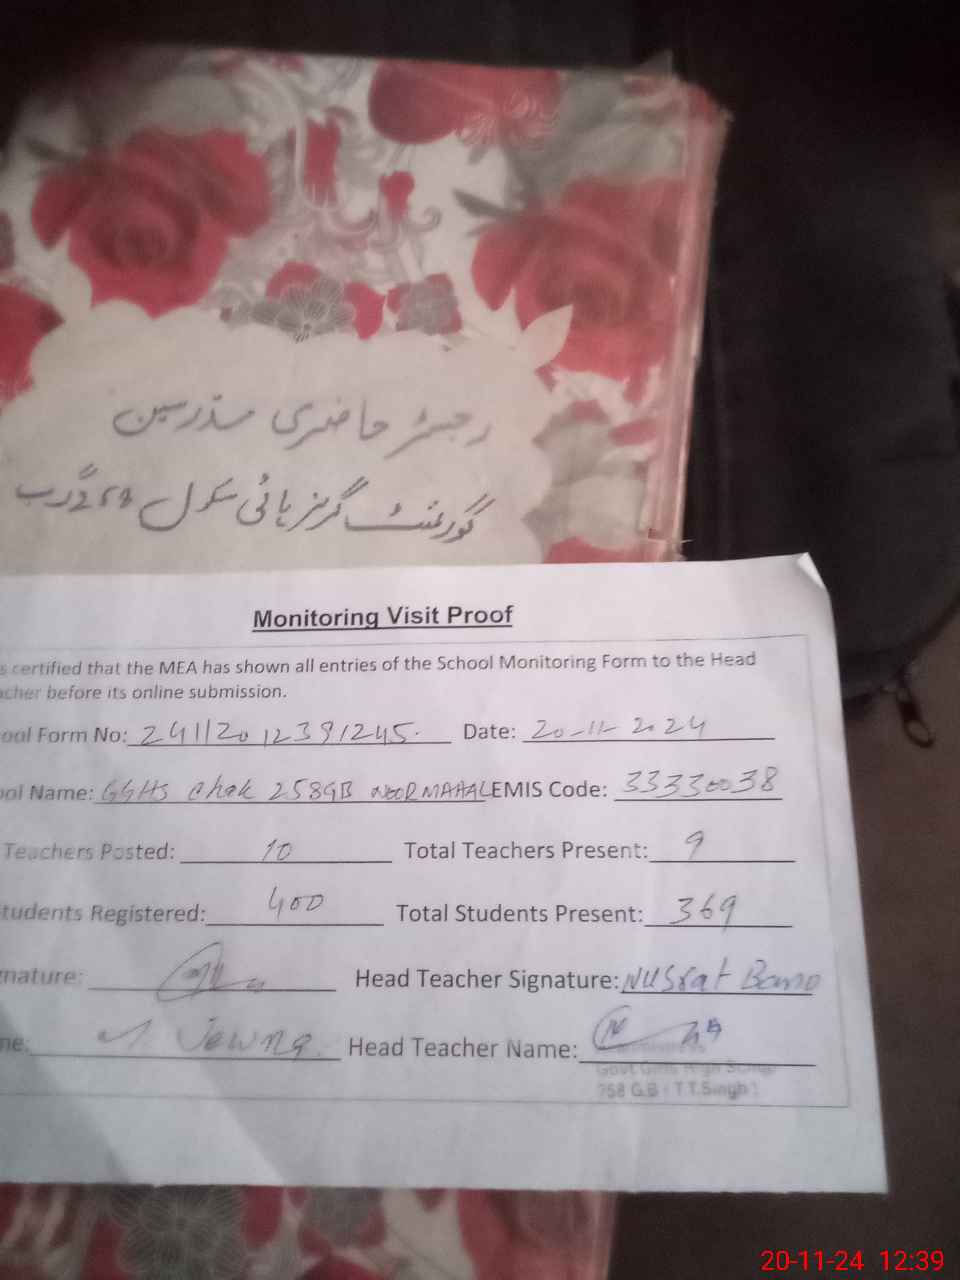 رجسٹر حاضری مدرسین
گورنمنٹ گرلز ہائی سکول 258 گ ب
Monitoring Visit Proof
s certified that the MEA has shown all entries of the School Monitoring Form to the Head
acher before its online submission.
ool Form No: 24112012391245. Date: 20-11-2024
ool Name: GGHS Chak 258GB NOORMAHAL EMIS Code: 33330038
Teachers Posted: 10 Total Teachers Present: 9
tudents Registered: 400 Total Students Present: 369
nature: Head Teacher Signature: NUSrat Bano
me: Head Teacher Name:
Govt Girls High School
758 G.B ( T.T.Singh )
20-11-24 12:39